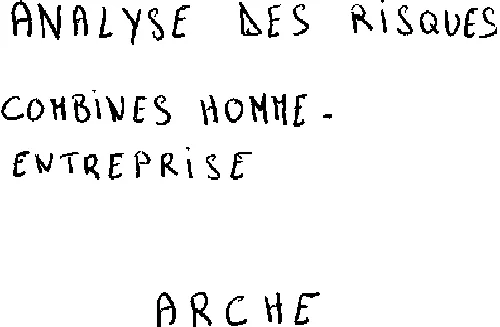 ANALYSE DES RiSQUES
COMBiNES HOMME-
ENTREPRiSE
ARCHE